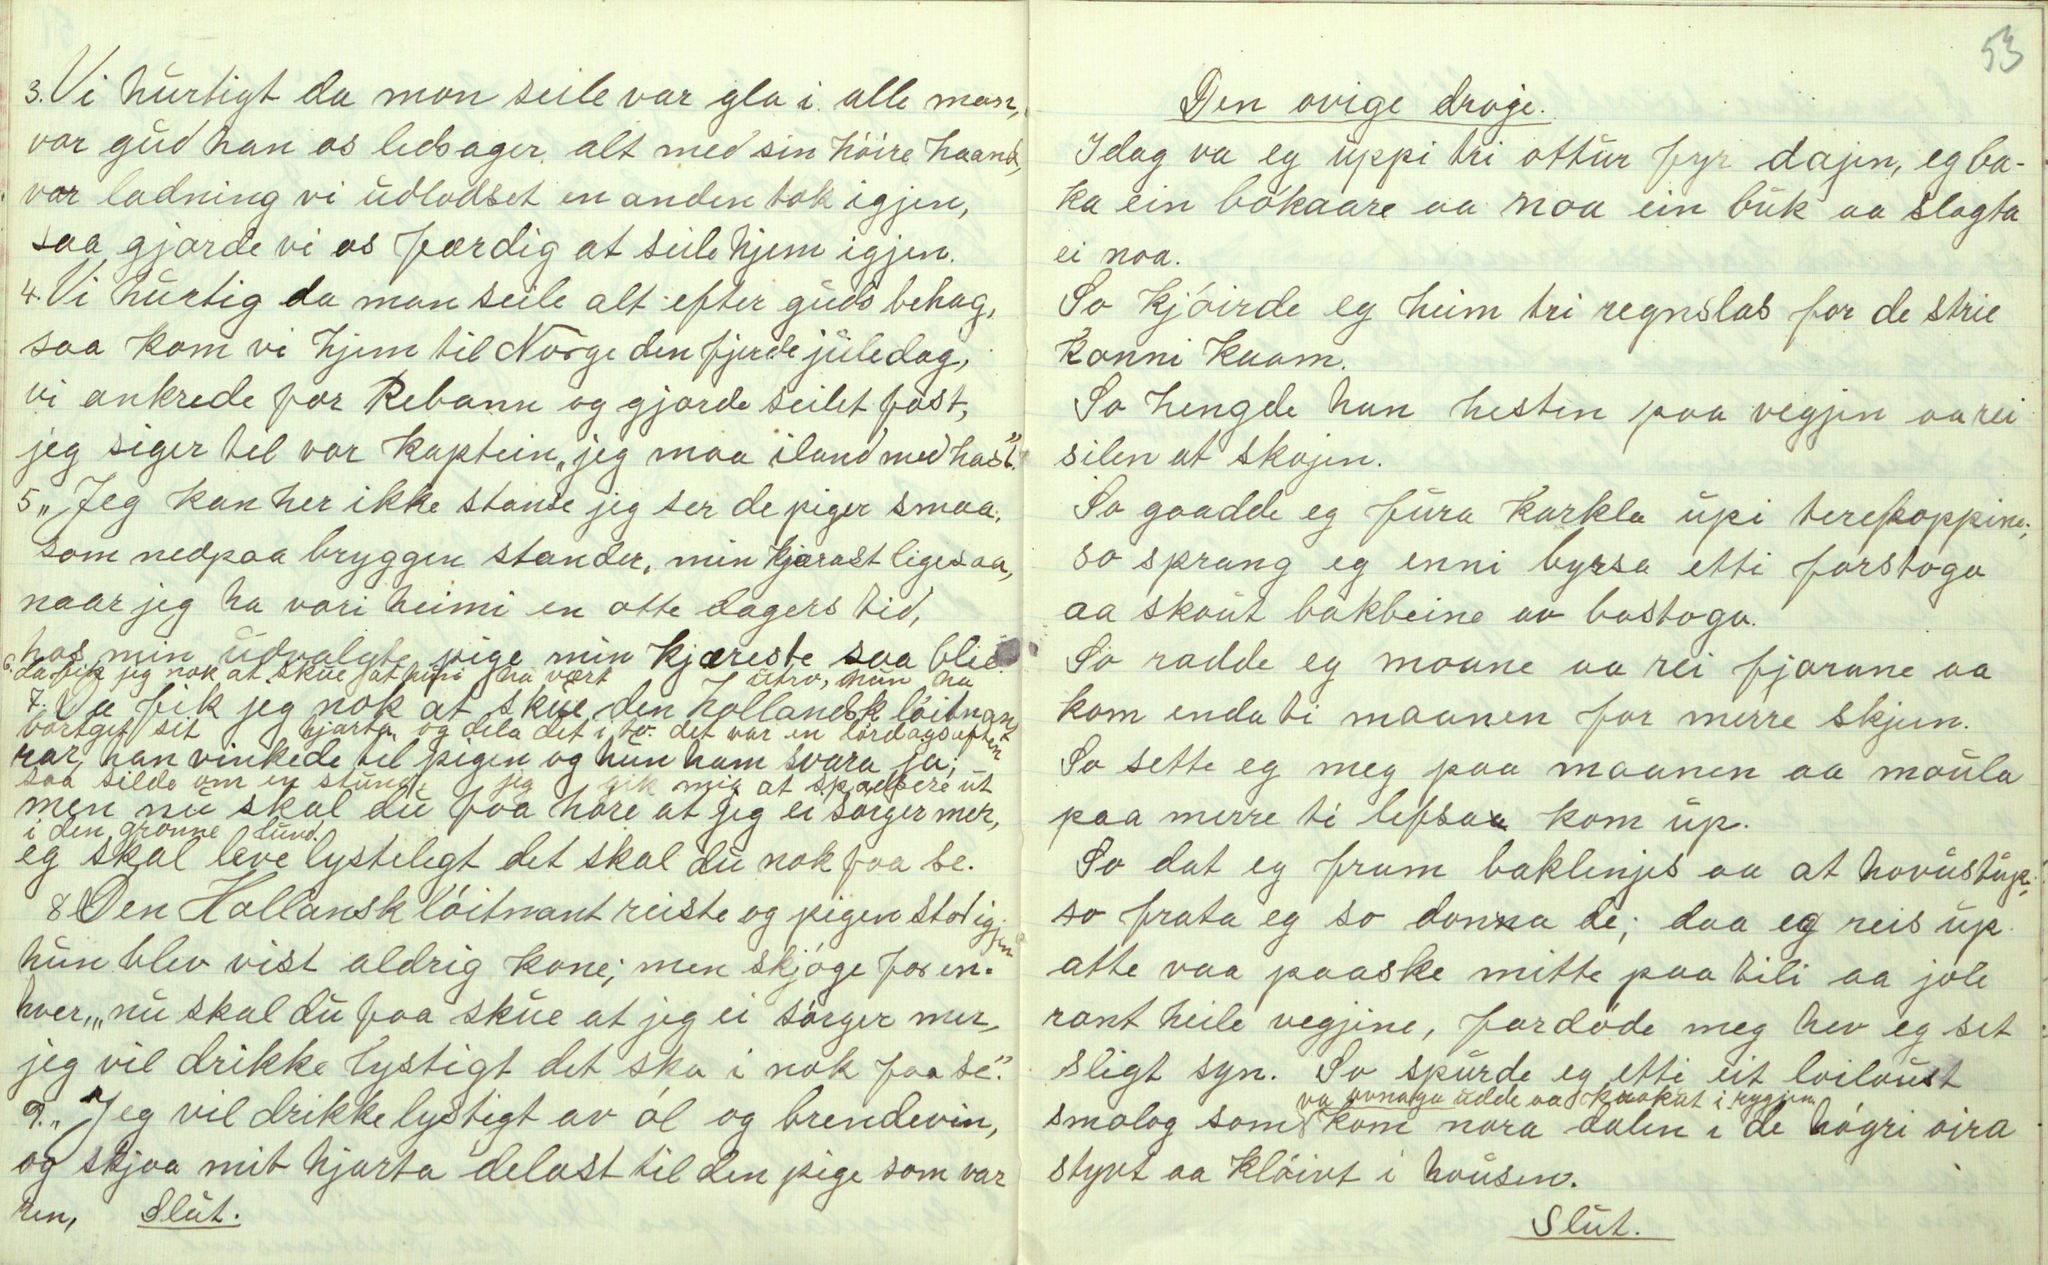 3. Vi hurtigt da mon seile var gla i alle man,
vor gud han os ledsager alt med sin höire haand,
vor ladning vi udlodset en anden tok igjen,
saa gjorde vi os færdig at seile hjem igjen.
4. Vi hurtig da mon seile alt efter guds behag,
saa kom vi hjem til Norge den fjerde juledag,
vi ankrede for Rebann og gjorde seilet fast,
jeg siger tel vor kaptein, „jeg maa iland med hast".
5 „Jeg kan her ikke stande jeg ser de piger smaa,
som nedpaa bryggen stander, min kjærast ligesaa,
naar jeg ha vori heimi en otte dagers tid,
hos min udvalgte pige min kjæreste saa blie
6. da fik jeg nok at skue at hun ha vært utro, hun ha
7. Da fik jeg nok at skue, den hollandsk löitnant
bortget sit hjarta og dela det i to. det var en lördagsaften
rar, han vinkede tel pigen og hun ham svara ja,
saa silde om en stund, jeg gik mig at spadsere ut
men nu skal du faa höre at jeg ei sorger mer,
i den grönne lund.
eg skal leve lystelegt det skal du nok faa se.
8 Den Hollansk löitnant reiste og pigen stod igjen
hun blev vist aldrig kone; men skjöge for en-
hver, „nu skal du faa skue at jeg ei sörger mer,
jeg vil drikke lystigt det ska i nok faa se".
9. „Jeg vil drikke lystigt av öl og brendevin,
og skjaa mit hjarta delast til den pige som var
ren, Slut.
53
Den ovige droje.
Idag va eg uppi tri ottur fyr dajen, eg ba-
ka ein bökaare aa noa ein buk aa slagta
ei noa.
So kjöirde eg heim tri regnslas for de strie
konni kaam.
So hengde han hesten paa vegjen aa rei
silen at skojen.
So gaadde eg fura karkla upi terefoppine;
so sprang eg enni byrsa etti forstogo
aa skout bakbeine av bastogo.
So radde eg moane aa rei fjorane aa
kom enda ti maanen for merre skjen.
So sette eg meg paa maanen aa moula
paa merre ti lefsaa kom up.
So dat eg fram baklenjes aa at hovustup.
so frata eg so donna de; daa eg reis up
atte vaa paaske mitte paa tili aa jole
rant heile vegjine, fordöde meg hev eg set
sligt syn. So spurde eg etti eit loiloust
va udde aa kaakut i rygjen
smolog som kom nora dalen i de högri oira
styvt aa klöivt i housen.
Slut.